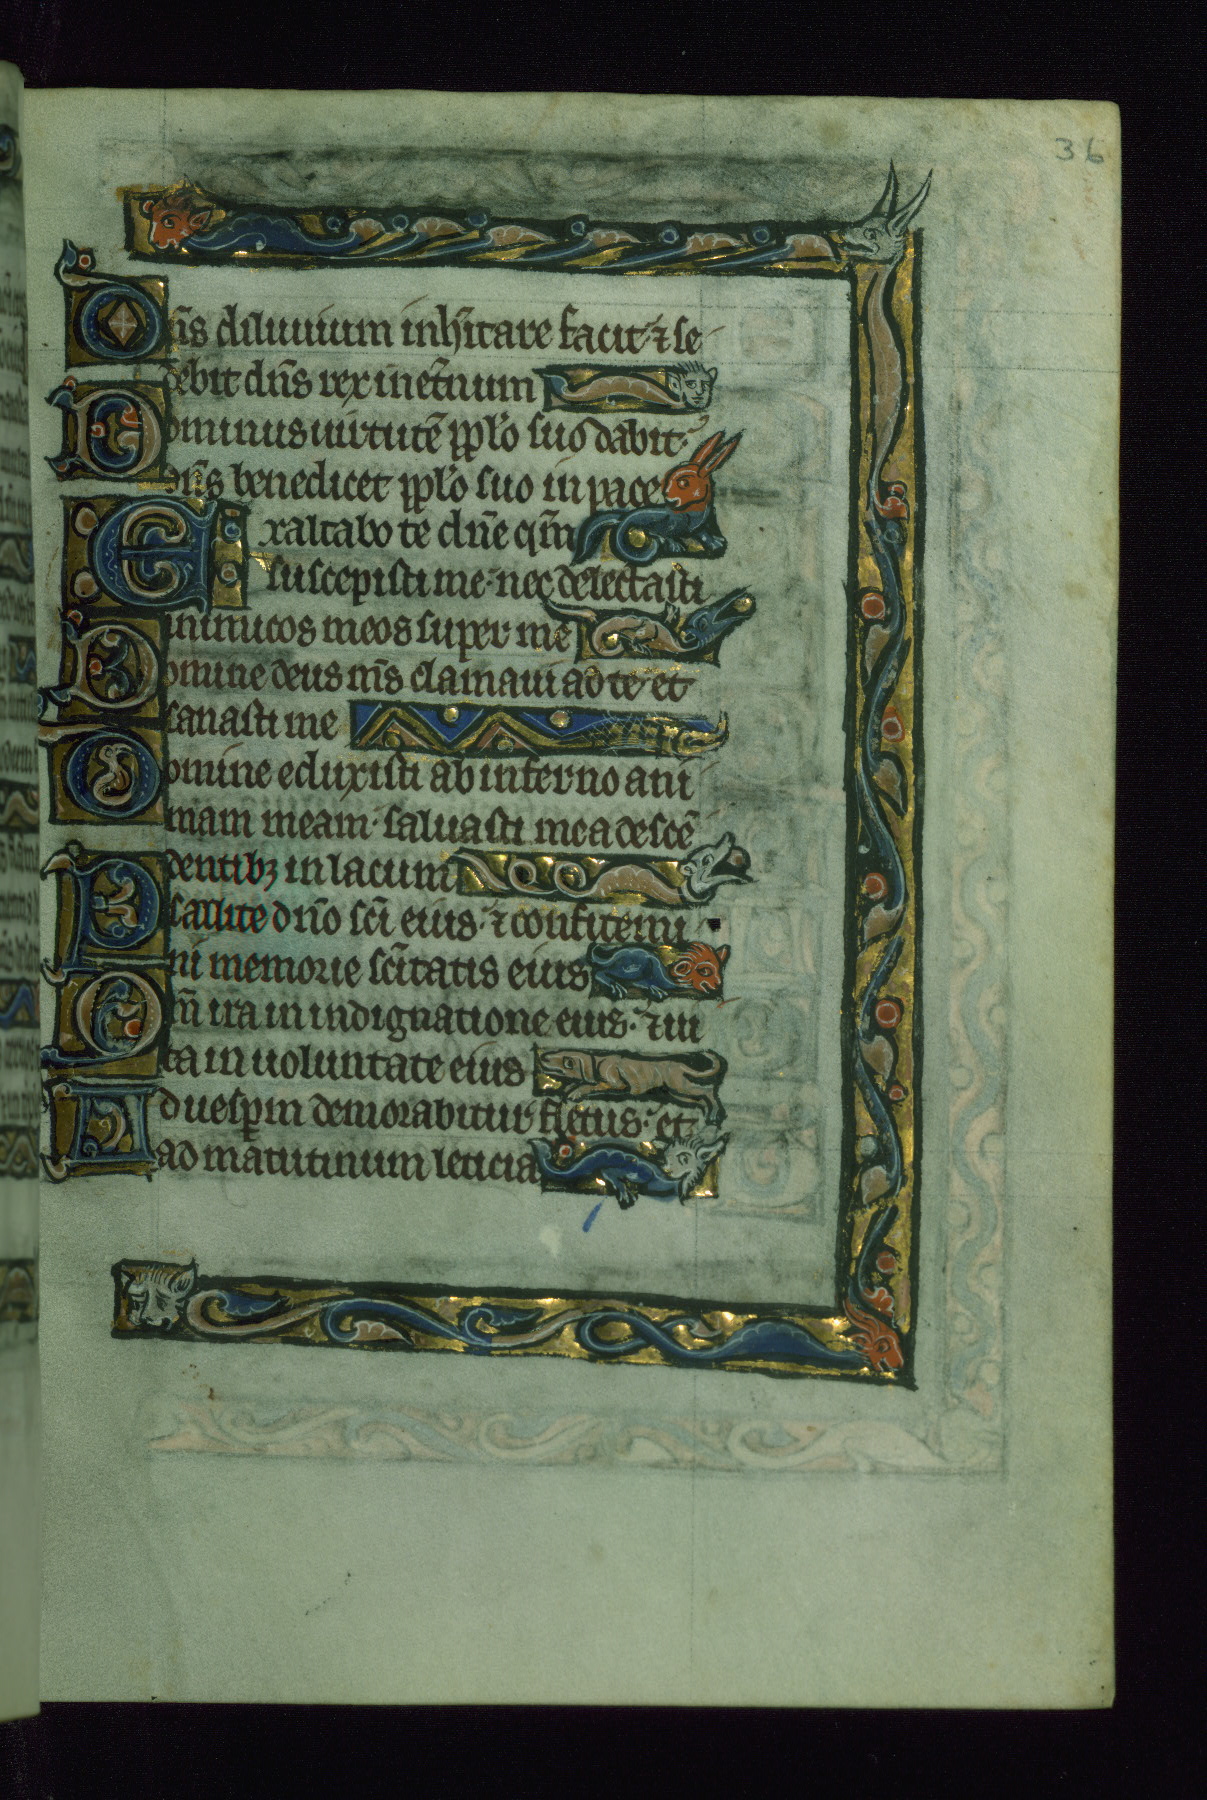 36
Dn̄s diluuium inh̄itare facit ⁊ se
debit dn̄s rex in et̄num
Dominus uirtutē pp̄lo suo dabit
dn̄s benedicet pp̄lo suo in pace
Exaltabo te dn̄e qm̄
suscepisti me nec delectasti
inimicos meos super me
Domine deus m̄s clamaui ad te et
sanasti me
Domine eduxisti ab inferno ani
mam meam saluasti me a descē
dentibꝫ in lacum
Psallite dn̄o sc̄i eius ⁊ confitemi
ni memorie sc̄itatis eius
Qm̄ ira in indignatione eius ⁊ ui
ta in uoluntate eius
Ad uesp̄m demorabitur fletus et
ad matutinum leticia